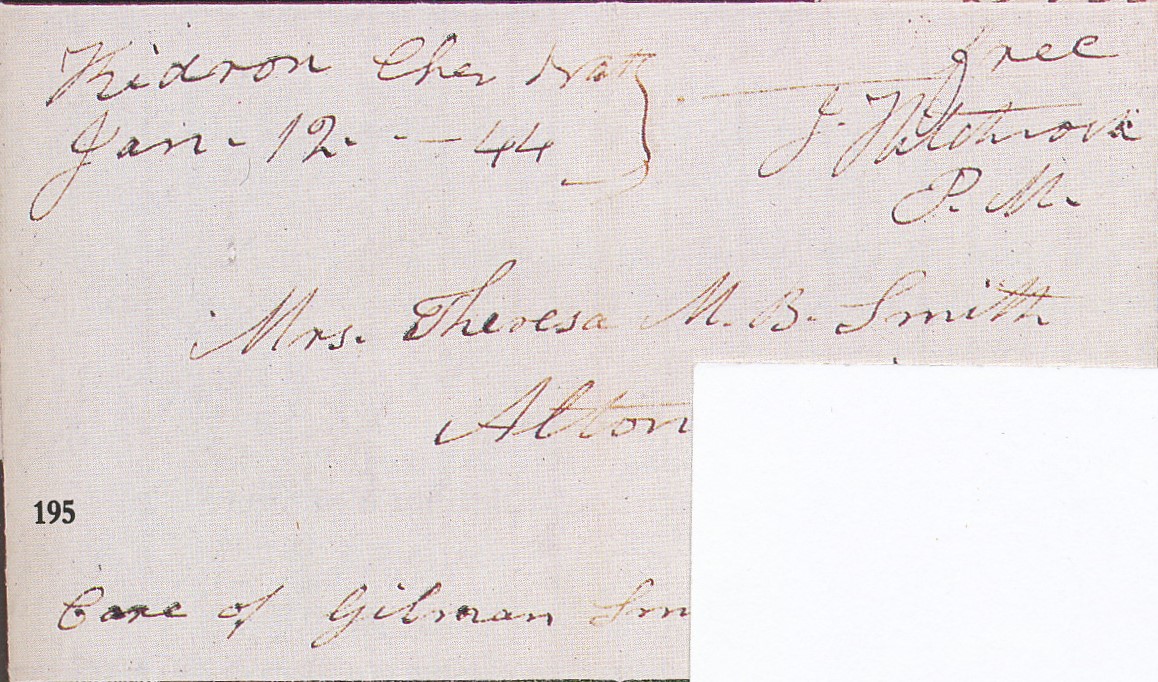 Kidron Cher Nat.
free
Jan. 12. - 44
J. Hitchcock
P. M.
Mrs. Theresa M. B. Smith
Alton
195
Care of Gilman Sm